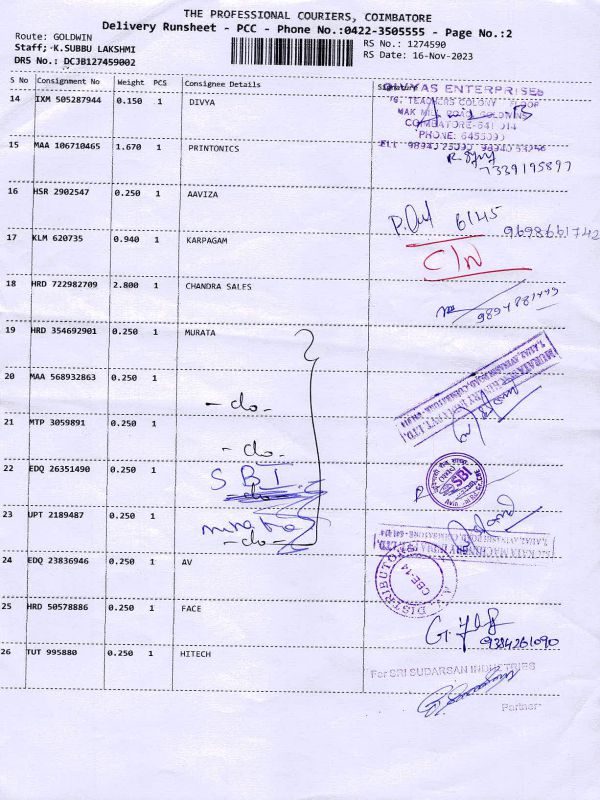 THE PROFESSIONAL COURIERS, COIMBATORE
Delivery Runsheet - PCC - Phone No.:0422-3505555 - Page No.:2
Route: GOLDWIN
Staff: K.SUBBU LAKSHMI
DRS No.: DCJB127459002
RS No.: 1274590
RS Date: 16-Nov-2023
S No Consignment No Weight PCS Consignee Details Signature
14 IXM 505287944 0.150 1 DIVYA
ENTERPRISES
TEACHERS COLONY
COIMBATORE-641 014
PHONE:
15 MAA 106710465 1.670 1 PRINTONICS
7339195897
16 HSR 2902547 0.250 1 AAVIZA
P.Out 6145
9698661742
17 KLM 620735 0.940 1 KARPAGAM
C/N
18 HRD 722982709 2.800 1 CHANDRA SALES
9894881449
19 HRD 354692901 0.250 1 MURATA
20 MAA 568932863 0.250 1
- do -
21 MTP 3059891 0.250 1
- do -
22 EDQ 26351490 0.250 1
SBI
do
SBI
23 UPT 2189487 0.250 1
murata
- do -
24 EDQ 23836946 0.250 1 AV
A.V. DISTRIBUTOR
CBE-14
25 HRD 50578886 0.250 1 FACE
9384261090
26 TUT 995880 0.250 1 HITECH
For SRI SUDARSAN INDUSTRIES
Partner